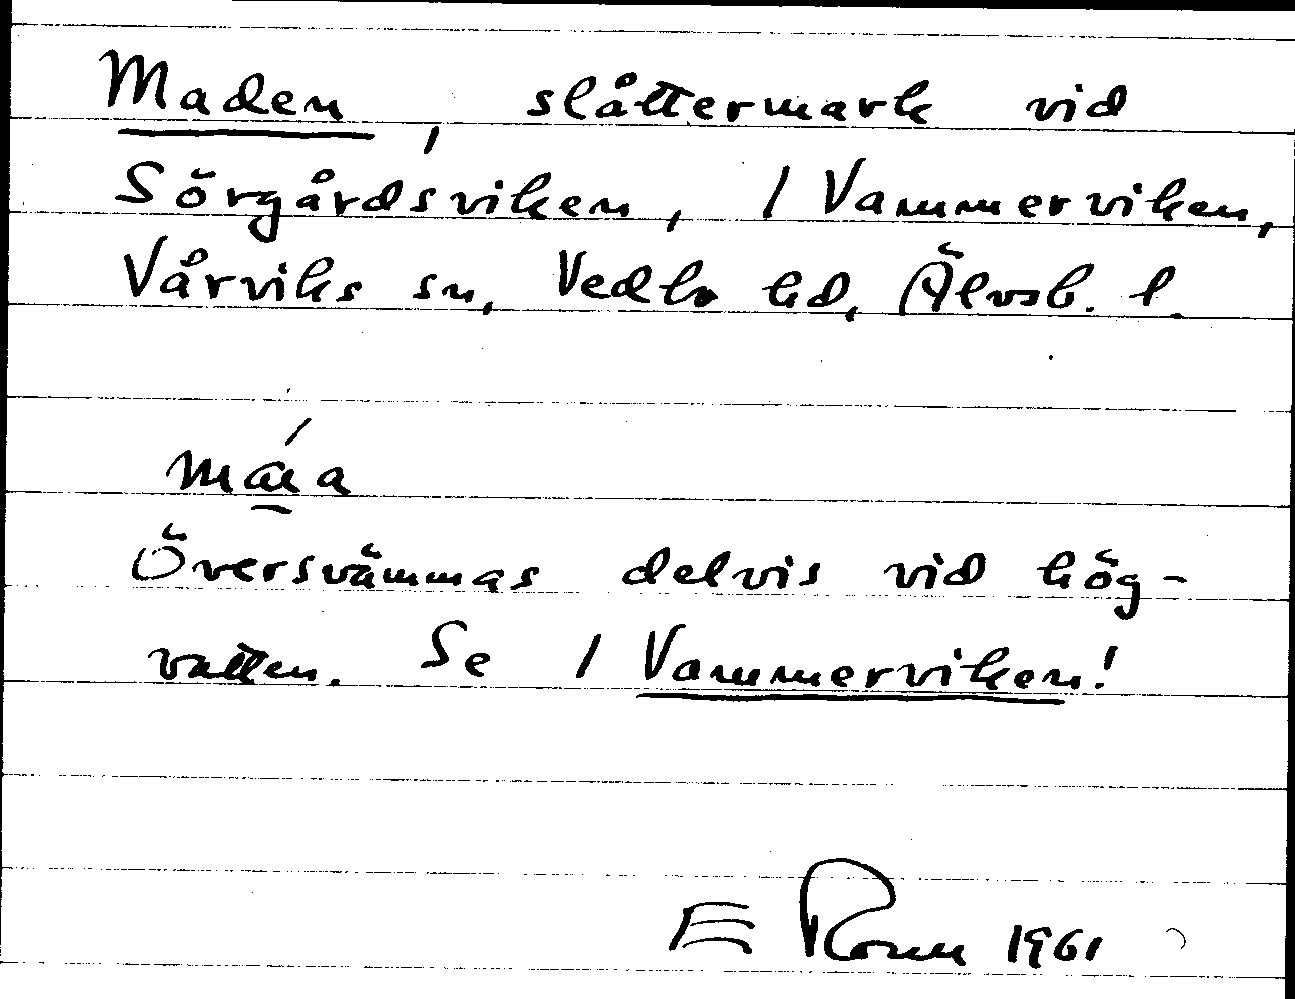 Maden, slåttermark vid
Sörgårdsviken, 1 Vammerviken,
Vårviks sn, Vedbo hd, Älvsb. l.
Översvämmas delvis vid hög-
vatten. Se 1 Vammerviken!
E 1961